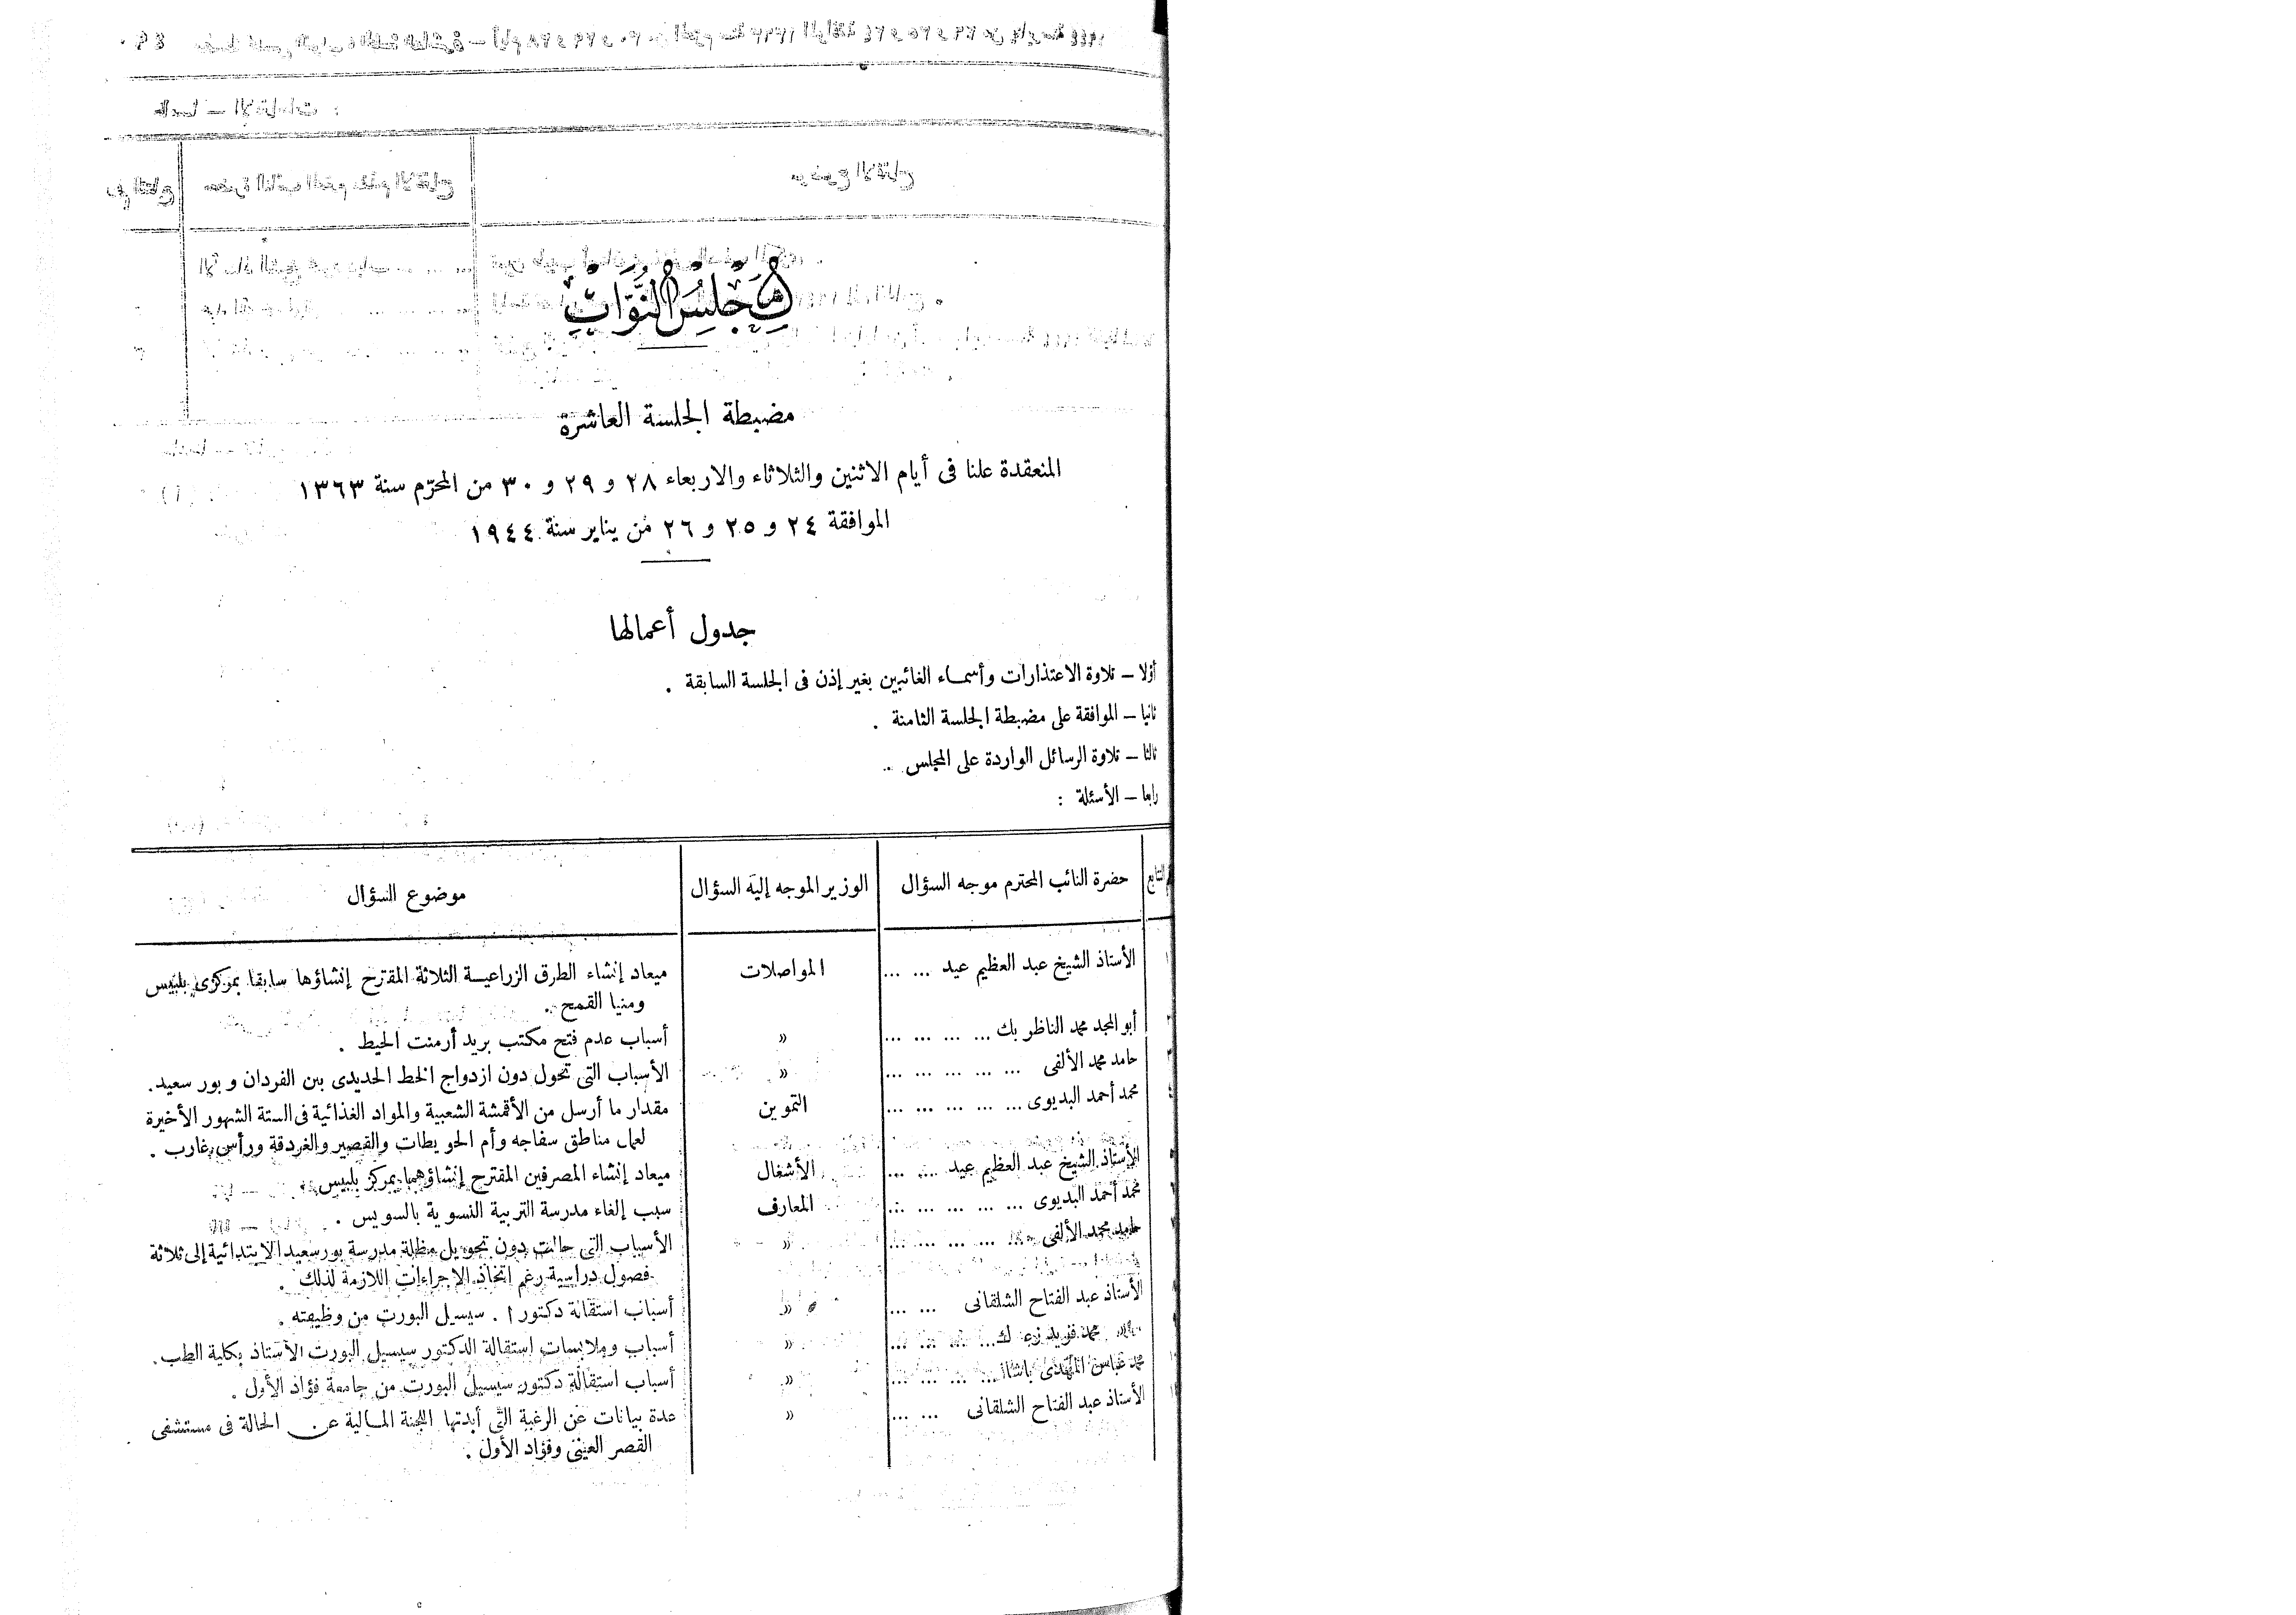 مجلس النواب
مضبطة الجلسة العاشرة
المنعقدة علنا فى أيام الاثنين والثلاثاء والاربعاء ٢٨ و ٢٩ و ٣٠ من المحرّم سنة ١٣٦٣
الموافقة ٢٤ و ٢٥ و ٢٦ من يناير سنة ١٩٤٤
جدول أعمالها
أوّلا — تلاوة الاعتذارات وأسماء الغائبين بغير إذن فى الجلسة السابقة .
ثانيا — الموافقة على مضبطة الجلسة الثامنة .
ثالثا — تلاوة الرسائل الواردة على المجلس .
رابعا — الأسئلة :
حضرة النائب المحترم موجه السؤال الوزير الموجه إليه السؤال موضوع السؤال
الأستاذ الشيخ عبد العظيم عيد ... ... المواصلات ميعاد إنشاء الطرق الزراعية الثلاثة المقترح إنشاؤها سابقا بمركزى بلبيس
ومنيا القمح .
أبو المجد محمد الناظر بك ... ... ... ... » أسباب عدم فتح مكتب بريد أرمنت الحيط .
حامد محمد الألفى ... ... ... ... ... » الأسباب التى تحول دون ازدواج الخط الحديدى بين الفردان و بور سعيد .
محمد أحمد البديوى ... ... ... ... ... التموين مقدار ما أرسل من الأقمشة الشعبية والمواد الغذائية فى الستة الشهور الأخيرة
لعمل مناطق سفاجه وأم الحويطات والقصير والغردقة ورأس غارب .
الأستاذ الشيخ عبد العظيم عيد ... ... الأشغال ميعاد إنشاء المصرفين المقترح إنشاؤهما بمركز بلبيس .
محمد أحمد البديوى ... ... ... ... ... المعارف سبب إلغاء مدرسة التربية النسوية بالسويس .
حامد محمد الألفى ... ... ... ... ... » الأسباب التى حالت دون تحويل مظلة مدرسة بور سعيد الابتدائية إلى ثلاثة
فصول دراسية رغم اتخاذ الإجراءات اللازمة لذلك .
الأستاذ عبد الفتاح الشلقانى ... ... » أسباب استقالة دكتور ا . سيسيل البورت من وظيفته .
» محمد فريد ... ... ... ... » أسباب وملابسات استقالة الدكتور سيسيل البورت الأستاذ بكلية الطب .
محمد عباس المهدى باشا ... ... ... ... » أسباب استقالة دكتور سيسيل البورت من جامعة فؤاد الأول .
الأستاذ عبد الفتاح الشلقانى ... ... » عدة بيانات عن الرغبة التى أبدتها اللجنة المالية عن الحالة فى مستشفى
القصر العينى وفؤاد الأول .